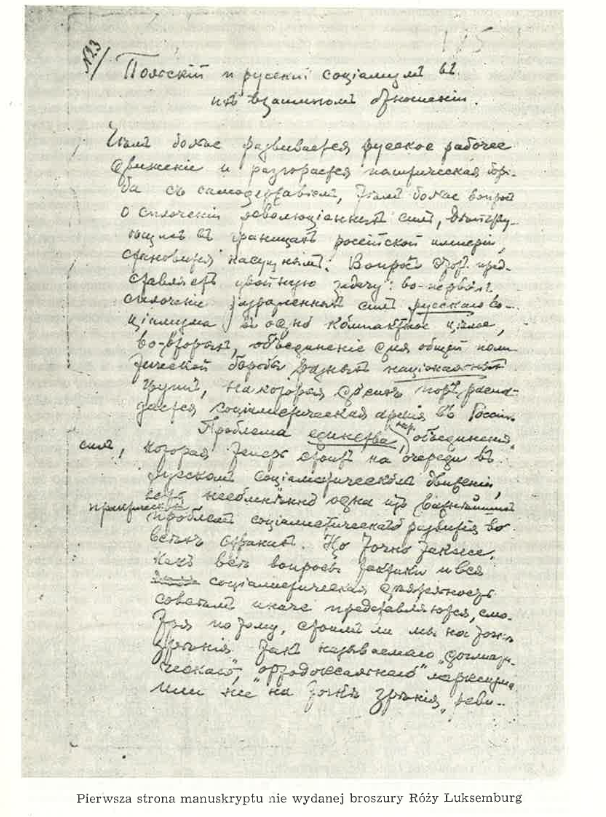 № 3/
Польскій и русскій соціализмъ въ
ихъ взаимномъ отношеніи.
Чѣмъ болѣе развивается русское рабочее
движеніе и разгорается политическая борь-
ба съ самодержавіемъ, тѣмъ болѣе вопросъ
о сплоченіи революціонныхъ силъ, дѣйству-
ющихъ въ границахъ россійской имперіи,
становится насущнымъ. Вопросъ этотъ пред-
ставляетъ двойную задачу: во-первыхъ
сплоченіе раздробленныхъ силъ русскаго со-
ціализма въ одно компактное цѣлое,
во-вторыхъ, объединеніе для общей поли
тической борьбы разныхъ національныхъ
группъ, на которыя до сихъ поръ распа-
дается соціалистическая армія въ Россіи.
Проблема единства, объединенія
силъ, которая теперь стоитъ на очереди въ
русскомъ соціалистическомъ движеніи,
есть несомнѣнно одна изъ важнѣйшихъ
практическихъ
проблемъ соціалистическаго развитія во
всѣхъ странахъ. Но точно также
какъ всѣ вопросы тактики и вся
соціалистическая дѣятельность
совсѣмъ иначе представляются, смо-
тря по тому, стоимъ ли мы на точкѣ
зрѣнія такъ называемаго „догмати-
ческаго", „ортодоксальнаго" марксизма
или же на точкѣ зрѣнія „реви-
Pierwsza strona manuskryptu nie wydanej broszury Róży Luksemburg